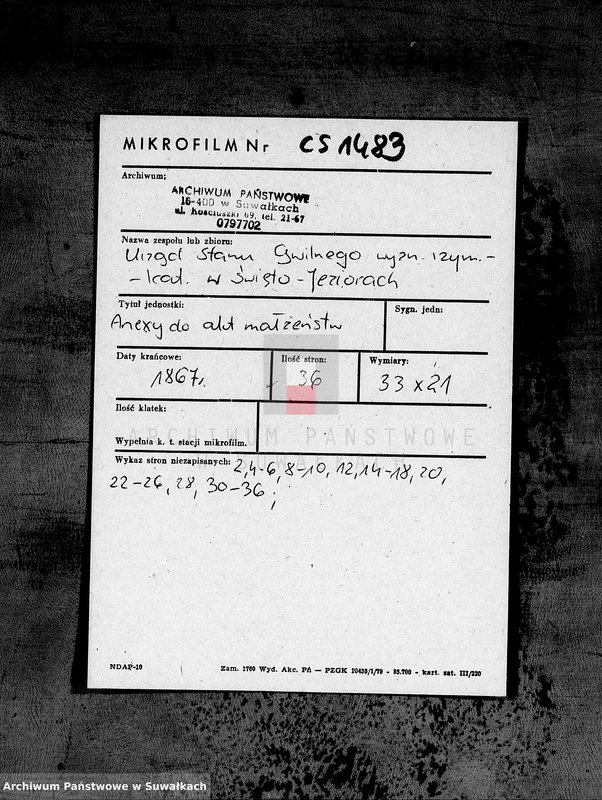 MIKROFILM Nr CS 1483
Archiwum:
ARCHIWUM PAŃSTWOWE
16-400 w Suwałkach
ul. Kościuszki 69, tel. 21-67
0797702
Nazwa zespołu lub zbioru:
Urząd Stanu Cywilnego wyzn. rzym.-
-kat. w Święto-Jeziorach
Tytuł jednostki:
Sygn. jedn:
Anexy do akt małżeństw
Daty krańcowe:
1867r.
Ilość stron:
36
Wymiary:
33 x 21
Ilość klatek:
ARCHIWUM PAŃSTWOWE
W SUWAŁKACH
Wypełnia k. t. stacji mikrofilm.
Wykaz stron niezapisanych: 2,4-6, 8-10, 12, 14-18, 20,
22-26, 28, 30-36;
NDAP-10
Zam. 1760 Wyd. Akc. Pń — PZGK 10435/1/79 - 85.700 - kart. sat. III/220
Archiwum Państwowe w Suwałkach